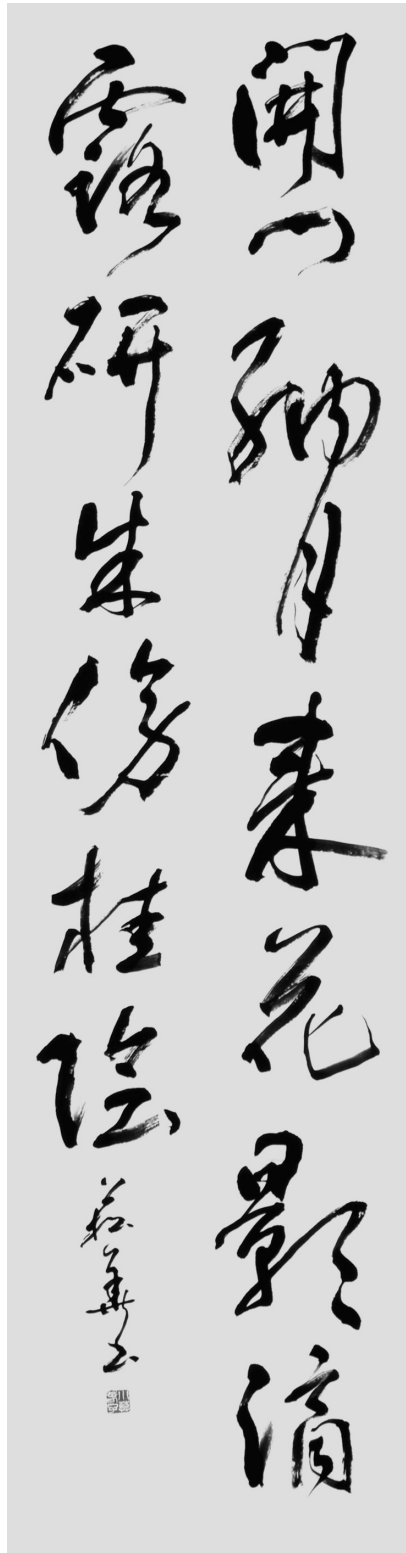 開門納月来花影滴
露研朱傍桂陰
華書